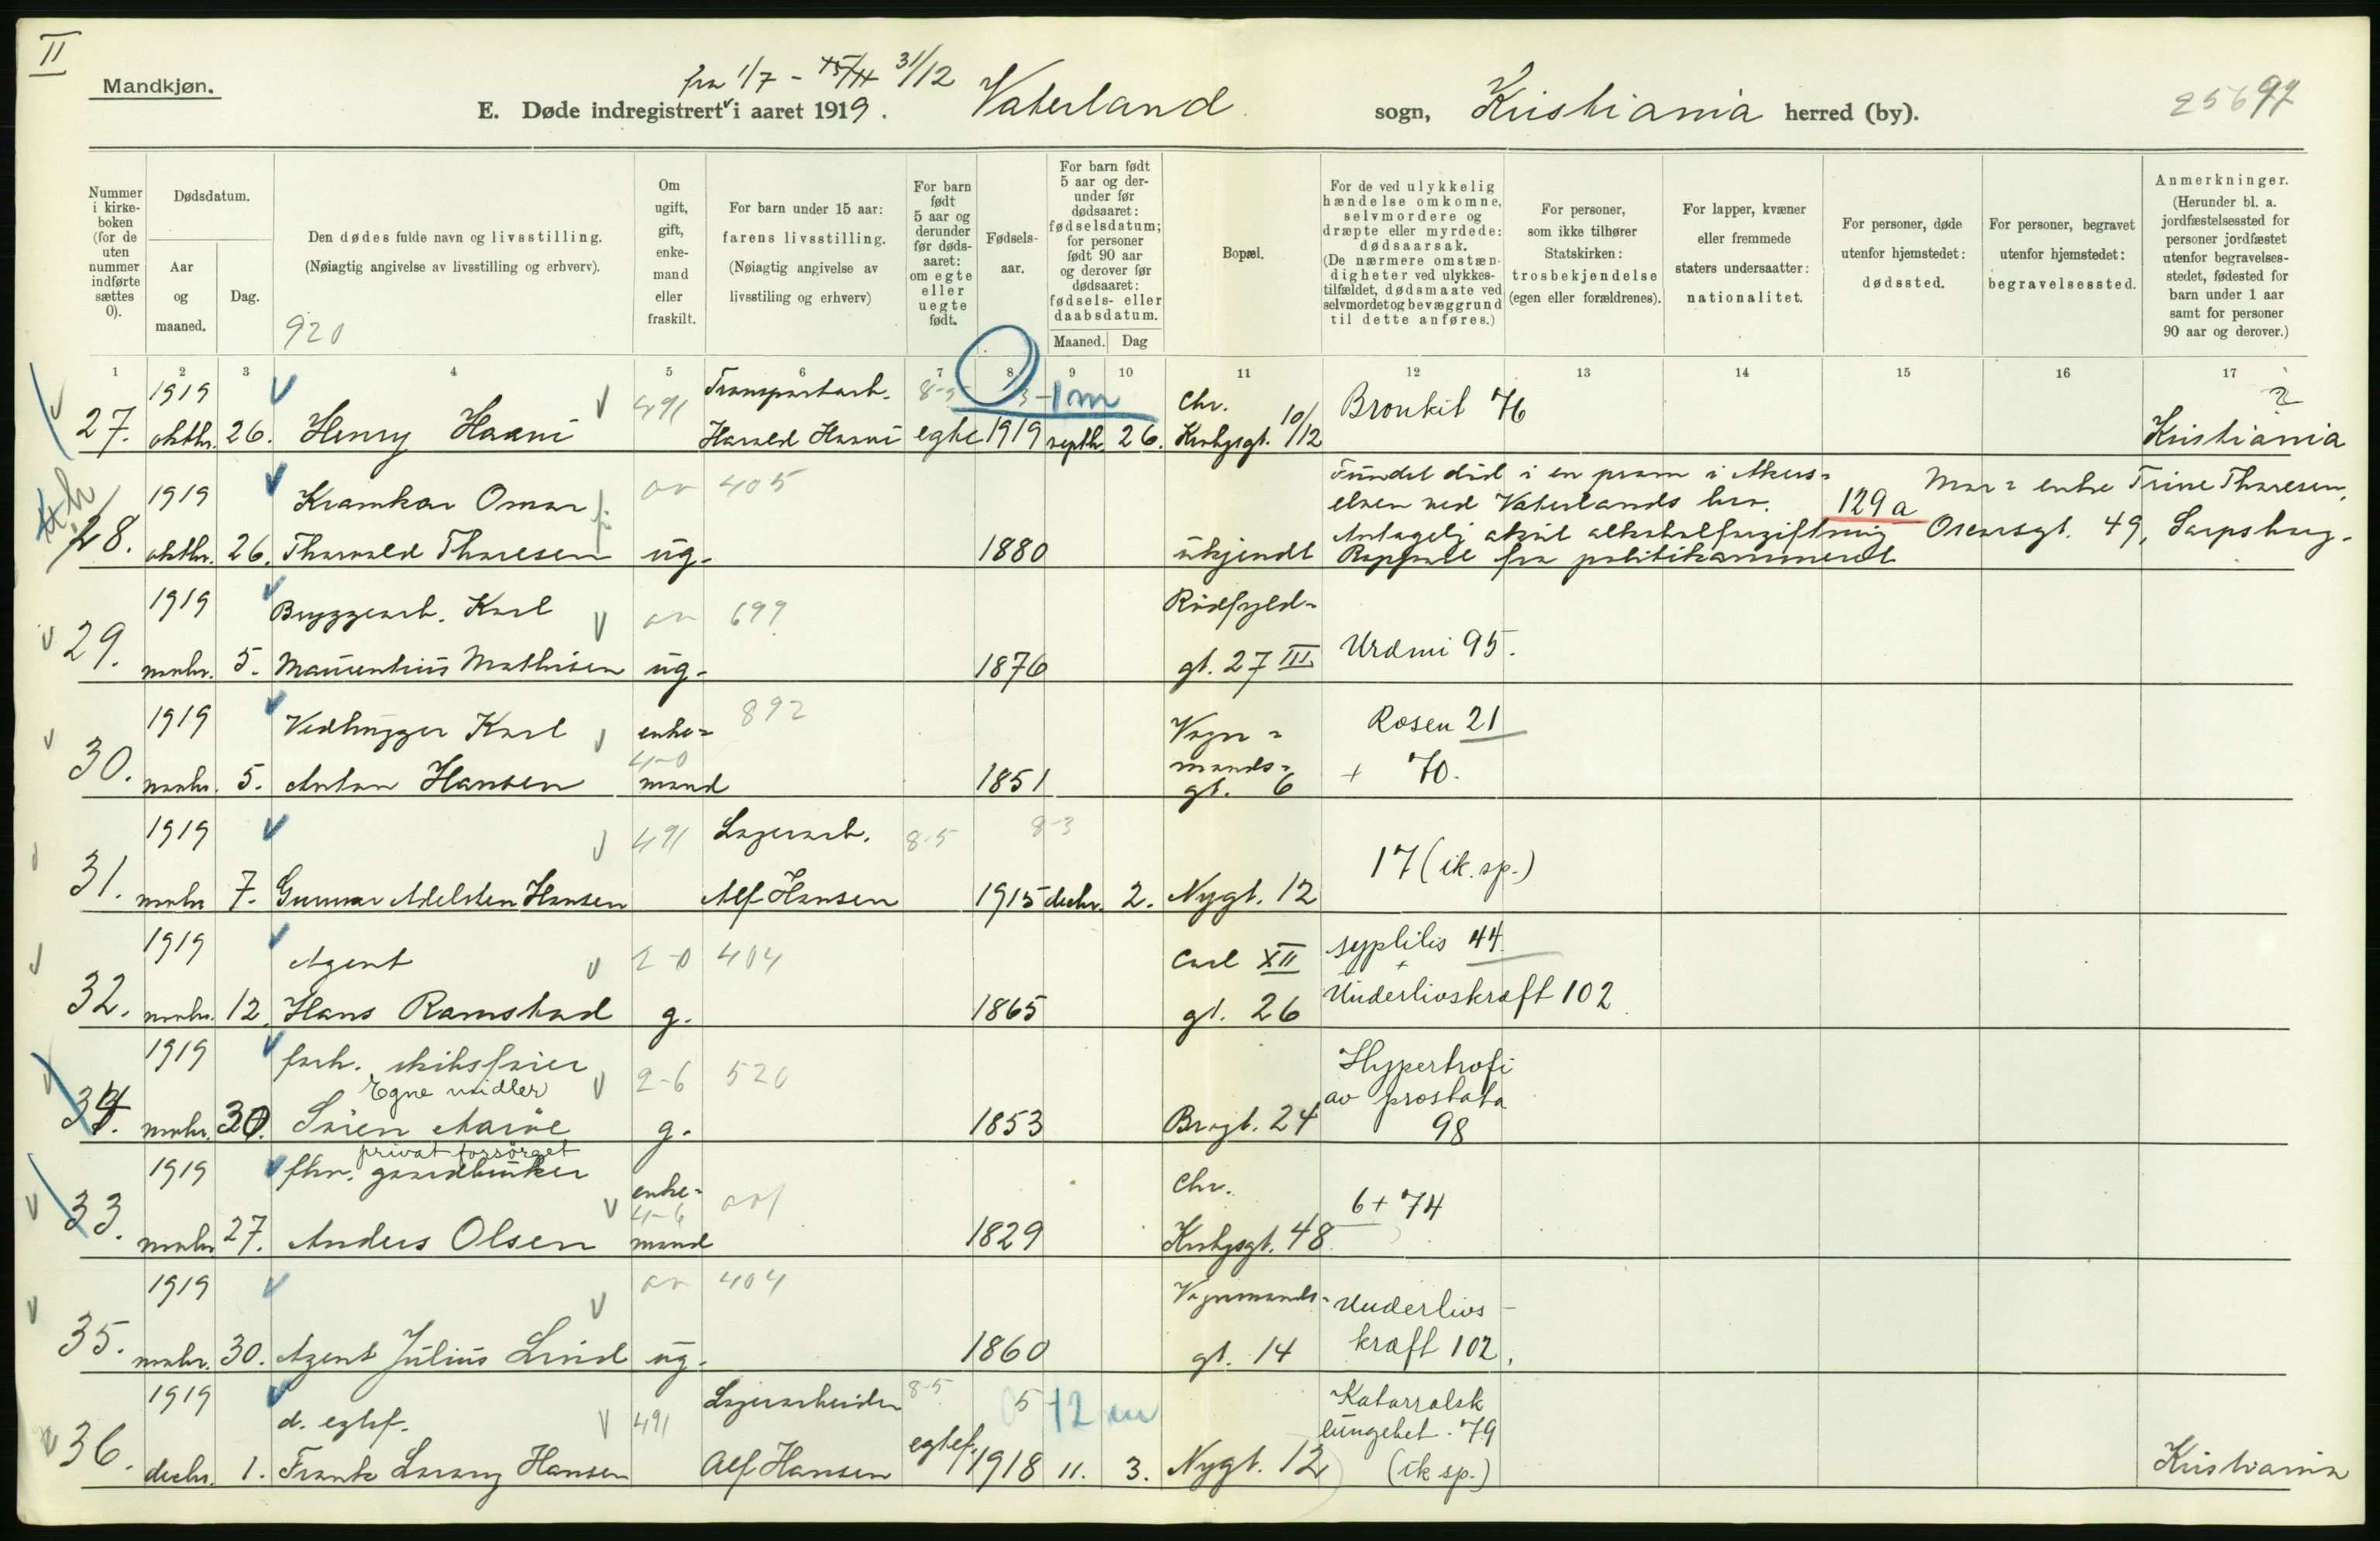 II
Mandkjøn.
fra 1/7 - 31/12
E. Døde indregistrert i aaret 1919. Vaterland sogn, Kristiania herred (by).
25697
Nummer i kirkeboken (for de uten nummer indførte sættes 0).
Dødsdatum.
Aar og maaned.
Dag.
Den dødes fulde navn og livsstilling.
(Nøiagtig angivelse av livsstilling og erhverv).
920
Om ugift, gift, enkemand eller fraskilt.
For barn under 15 aar: farens livsstilling.
(Nøiagtig angivelse av livsstiling og erhverv)
For barn født 5 aar og derunder før dødsaaret: om egte eller uegte født.
Fødselsaar.
For barn født 5 aar og derunder før dødsaaret: fødselsdatum; for personer født 90 aar og derover før dødsaaret: fødsels- eller daabsdatum.
Maaned. Dag
Bopæl.
For de ved ulykkelig hændelse omkomne, selvmordere og dræpte eller myrdede: dødsaarsak.
(De nærmere omstændigheter ved ulykkestilfældet, dødsmaate ved selvmordet og bevæggrund til dette anføres.)
For personer, som ikke tilhører Statskirken: trosbekjendelse (egen eller forældrenes).
For lapper, kvæner eller fremmede staters undersaatter: nationalitet.
For personer, døde utenfor hjemstedet: dødssted.
For personer, begravet utenfor hjemstedet: begravelsessted.
Anmerkninger.
(Herunder bl. a. jordfæstelsessted for personer jordfæstet utenfor begravelsesstedet, fødested for barn under 1 aar samt for personer 90 aar og derover.)
1 2 3 4 5 6 7 8 9 10 11 12 13 14 15 16 17
1919 491 Transportarb. 1m Chr. Bronkit 76
27. oktbr. 26. Henry Haani Harald Haani egte 1919 septbr. 26. Krohgsgt. 10/12 Kristiania
1919 Kramkar Omar 405 Fundet död i en pram i Akers-
elven ved Vaterlands bro. 129a Mor = enke Trine Thoresen,
28. oktbr. 26. Thorvald Thoresen ug. 1880 ukjendt Antagelig akut alkoholforgiftning Oscarsgt. 49, Sarpsborg.
Rapport fra politikammeret
1919 Bryggearb. Karl 699 Rödfyld-
29. novbr. 5. Maurentius Mathisen ug. 1876 gt. 27 III Urämi 95.
1919 Vedhugger Karl enke- 892 Vogn- Rosen 21
30. novbr. 5. Anton Hansen 4-0 mand 1851 mands- gt. 6 + 70.
1919 491 Lagerarb. 8-5 8-3
31. novbr. 7. Gunnar Adelsten Hansen Alf Hansen 1915 decbr. 2. Nygt. 12 17 (ik. sp.)
1919 Agent 2-0 404 Carl XII syphilis 44
32. novbr. 12. Hans Ramstad g. 1865 gt. 26 + Underlivskræft 102
1919 forh. skibsfører 2-6 520 Hypertrofi
Egne midler av prostata
34. novbr. 30. Sören Aaröe g. 1853 Brogt. 24 98
privat forsörget
1919 fhv. gaardbruker enke- Chr. 6 + 74
33. novbr. 27. Anders Olsen 4-6 mand 1829 Krohgsgt. 48
1919 404 Vognmands- Underlivs-
35. novbr. 30. Agent Julius Lind ug. 1860 gt. 14 kræft 102.
1919 d. egtef. 491 Lagerarbeider 8-5 5 12 m Katarralsk
lungebet. 79
36. decbr. 1. Frank Lorang Hansen Alf Hansen egtef. 1918 11. 3. Nygt. 12 (ik sp.) Kristiania